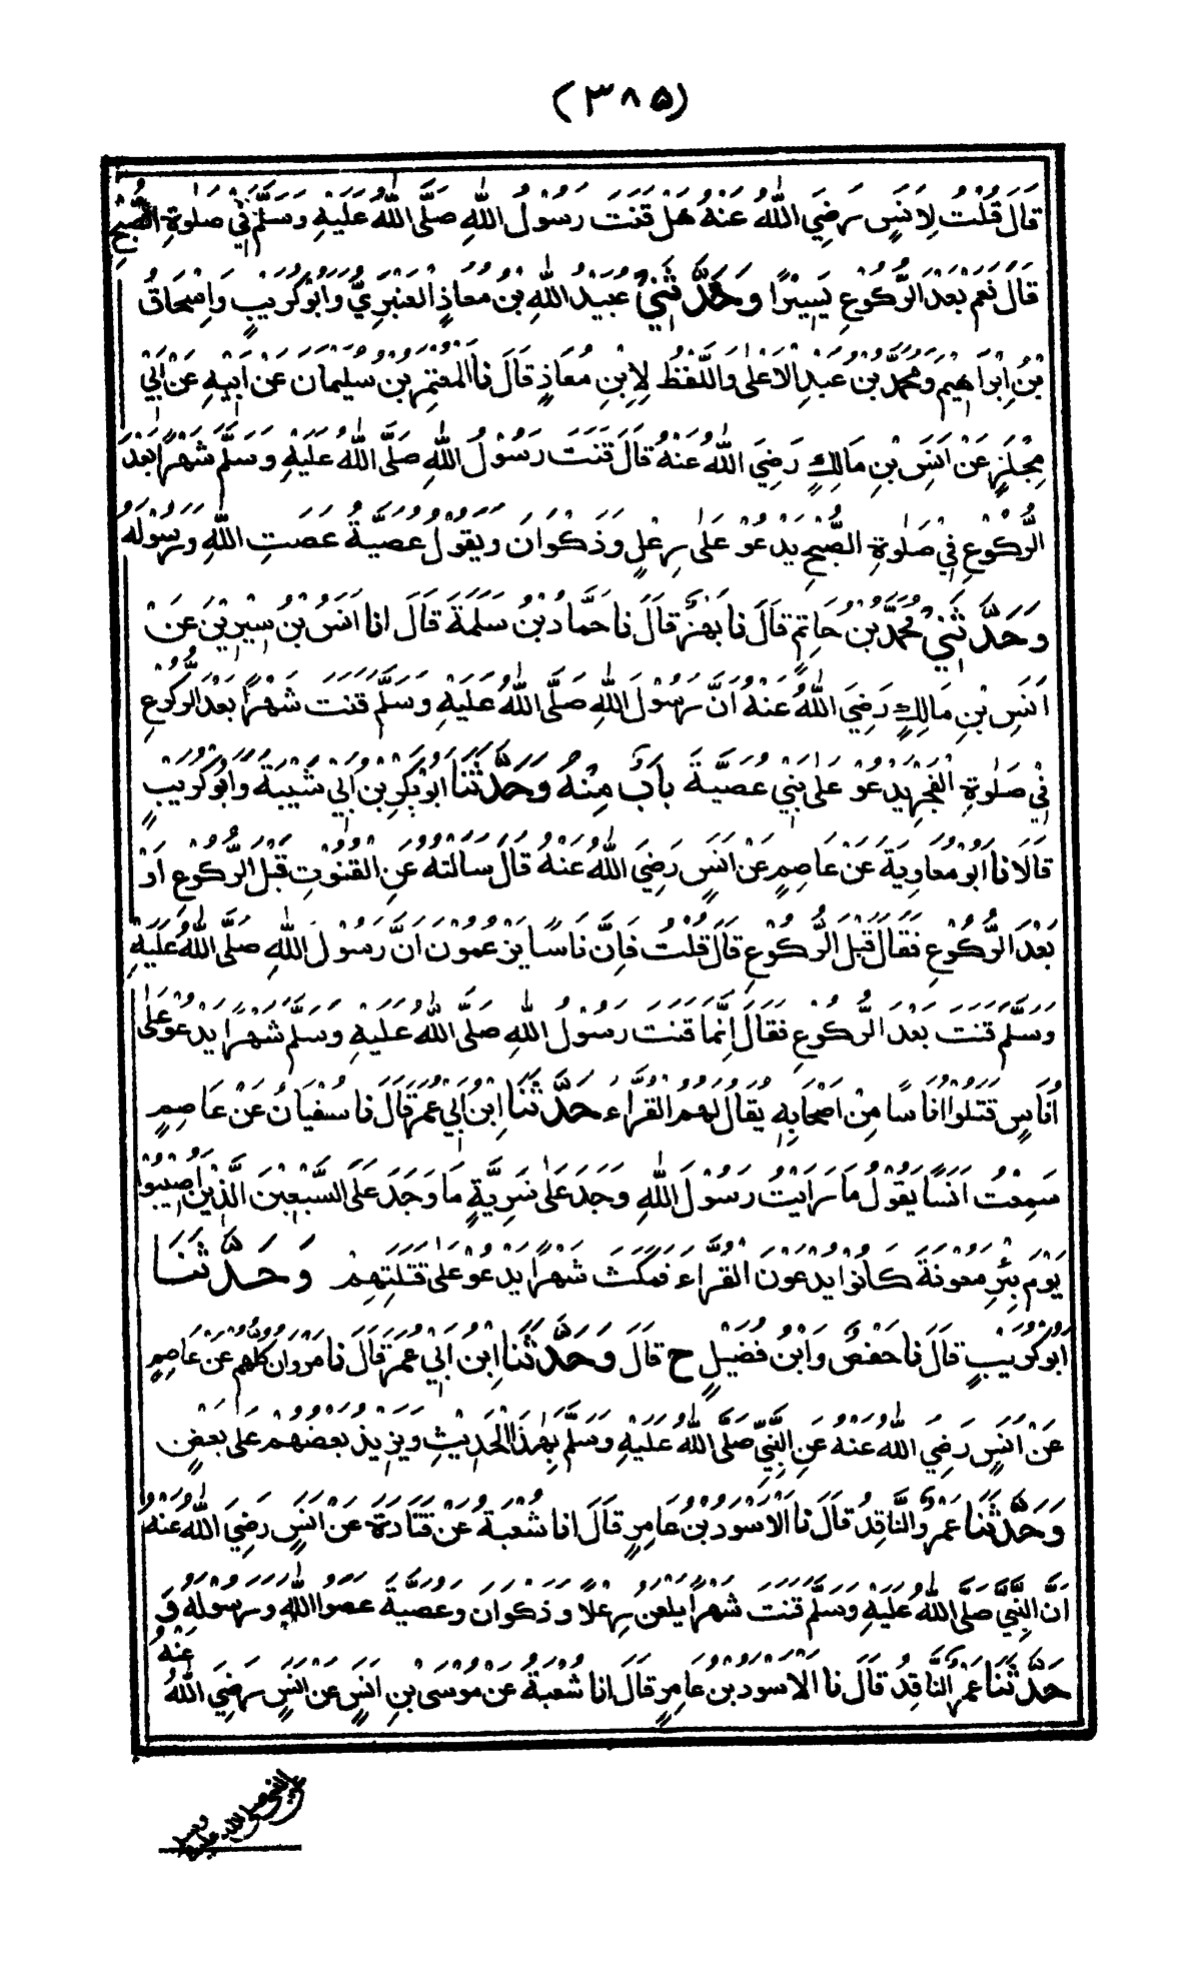 (۳۸۵)
قَالَ قُلْتُ لِاَنَسٍ رَضِيَ اللّٰهُ عَنْهُ هَلْ قَنَتَ رَسُوْلُ اللّٰهِ صَلَّى اللّٰهُ عَلَيْهِ وَسَلَّمَ فِيْ صَلٰوةِ الصُّبْحِ
قَالَ نَعَمْ بَعْدَ الرُّكُوْعِ يَسِيْرًا وَحَدَّثَنِيْ عُبَيْدُ اللّٰهِ بْنُ مُعَاذٍ الْعَنْبَرِيُّ وَاَبُوْ كُرَيْبٍ وَاِسْحَاقُ
بْنُ اِبْرَاهِيْمَ وَمُحَمَّدُ بْنُ عَبْدِ الْاَعْلٰى وَاللَّفْظُ لِاِبْنِ مُعَاذٍ قَالَ نَا الْمُعْتَمِرُ بْنُ سُلَيْمَانَ عَنْ اَبِيْهِ عَنْ اَبِيْ
مِجْلَزٍ عَنْ اَنَسِ بْنِ مَالِكٍ رَضِيَ اللّٰهُ عَنْهُ قَالَ قَنَتَ رَسُوْلُ اللّٰهِ صَلَّى اللّٰهُ عَلَيْهِ وَسَلَّمَ شَهْرًا بَعْدَ
الرُّكُوْعِ فِيْ صَلٰوةِ الصُّبْحِ يَدْعُوْ عَلٰى رِعْلٍ وَذَكْوَانَ وَيَقُوْلُ عُصَيَّةُ عَصَتِ اللّٰهَ وَرَسُوْلَهُ
وَحَدَّثَنِيْ مُحَمَّدُ بْنُ حَاتِمٍ قَالَ نَا بَهْزٌ قَالَ نَا حَمَّادُ بْنُ سَلَمَةَ قَالَ اَنَا اَنَسُ بْنُ سِيْرِيْنَ عَنْ
اَنَسِ بْنِ مَالِكٍ رَضِيَ اللّٰهُ عَنْهُ اَنَّ رَسُوْلَ اللّٰهِ صَلَّى اللّٰهُ عَلَيْهِ وَسَلَّمَ قَنَتَ شَهْرًا بَعْدَ الرُّكُوْعِ
فِيْ صَلٰوةِ الْفَجْرِ يَدْعُوْ عَلٰى بَنِيْ عُصَيَّةَ بَابٌ مِنْهُ وَحَدَّثَنَا اَبُوْ بَكْرِ بْنُ اَبِيْ شَيْبَةَ وَاَبُوْ كُرَيْبٍ
قَالَا نَا اَبُوْ مُعَاوِيَةَ عَنْ عَاصِمٍ عَنْ اَنَسٍ رَضِيَ اللّٰهُ عَنْهُ قَالَ سَاَلْتُهُ عَنِ الْقُنُوْتِ قَبْلَ الرُّكُوْعِ اَوْ
بَعْدَ الرُّكُوْعِ فَقَالَ قَبْلَ الرُّكُوْعِ قَالَ قُلْتُ فَاِنَّ نَاسًا يَزْعُمُوْنَ اَنَّ رَسُوْلَ اللّٰهِ صَلَّى اللّٰهُ عَلَيْهِ
وَسَلَّمَ قَنَتَ بَعْدَ الرُّكُوْعِ فَقَالَ اِنَّمَا قَنَتَ رَسُوْلُ اللّٰهِ صَلَّى اللّٰهُ عَلَيْهِ وَسَلَّمَ شَهْرًا يَدْعُوْ عَلٰى
اُنَاسٍ قَتَلُوْا اُنَاسًا مِنْ اَصْحَابِهٖ يُقَالُ لَهُمُ الْقُرَّاءُ حَدَّثَنَا اِبْنُ اَبِيْ عُمَرَ قَالَ نَا سُفْيَانُ عَنْ عَاصِمٍ
سَمِعْتُ اَنَسًا يَقُوْلُ مَا رَاَيْتُ رَسُوْلَ اللّٰهِ وَجَدَ عَلٰى سَرِيَّةٍ مَا وَجَدَ عَلَى السَّبْعِيْنَ الَّذِيْنَ اُصِيْبُوْا
يَوْمَ بِئْرِ مَعُوْنَةَ كَانُوْا يُدْعَوْنَ الْقُرَّاءَ فَمَكَثَ شَهْرًا يَدْعُوْ عَلٰى قَتَلَتِهِمْ وَحَدَّثَنَا
اَبُوْ كُرَيْبٍ قَالَ نَا حَفْصٌ وَابْنُ فُضَيْلٍ ح قَالَ وَحَدَّثَنَا اِبْنُ اَبِيْ عُمَرَ قَالَ نَا مَرْوَانُ كُلُّهُمْ عَنْ عَاصِمٍ
عَنْ اَنَسٍ رَضِيَ اللّٰهُ عَنْهُ عَنِ النَّبِيِّ صَلَّى اللّٰهُ عَلَيْهِ وَسَلَّمَ بِهٰذَا الْحَدِيْثِ وَيَزِيْدُ بَعْضُهُمْ عَلٰى بَعْضٍ
وَحَدَّثَنَا عَمْرٌو النَّاقِدُ قَالَ نَا الْاَسْوَدُ بْنُ عَامِرٍ قَالَ اَنَا شُعْبَةُ عَنْ قَتَادَةَ عَنْ اَنَسٍ رَضِيَ اللّٰهُ عَنْهُ
اَنَّ النَّبِيَّ صَلَّى اللّٰهُ عَلَيْهِ وَسَلَّمَ قَنَتَ شَهْرًا يَلْعَنُ رِعْلًا وَذَكْوَانَ وَعُصَيَّةَ عَصَوُا اللّٰهَ وَرَسُوْلَهُ وَ
حَدَّثَنَا عَمْرٌو النَّاقِدُ قَالَ نَا الْاَسْوَدُ بْنُ عَامِرٍ قَالَ اَنَا شُعْبَةُ عَنْ مُوْسَى بْنِ اَنَسٍ عَنْ اَنَسٍ رَضِيَ اللّٰهُ عَنْهُ
عن النبي صلى الله عليه وسلم